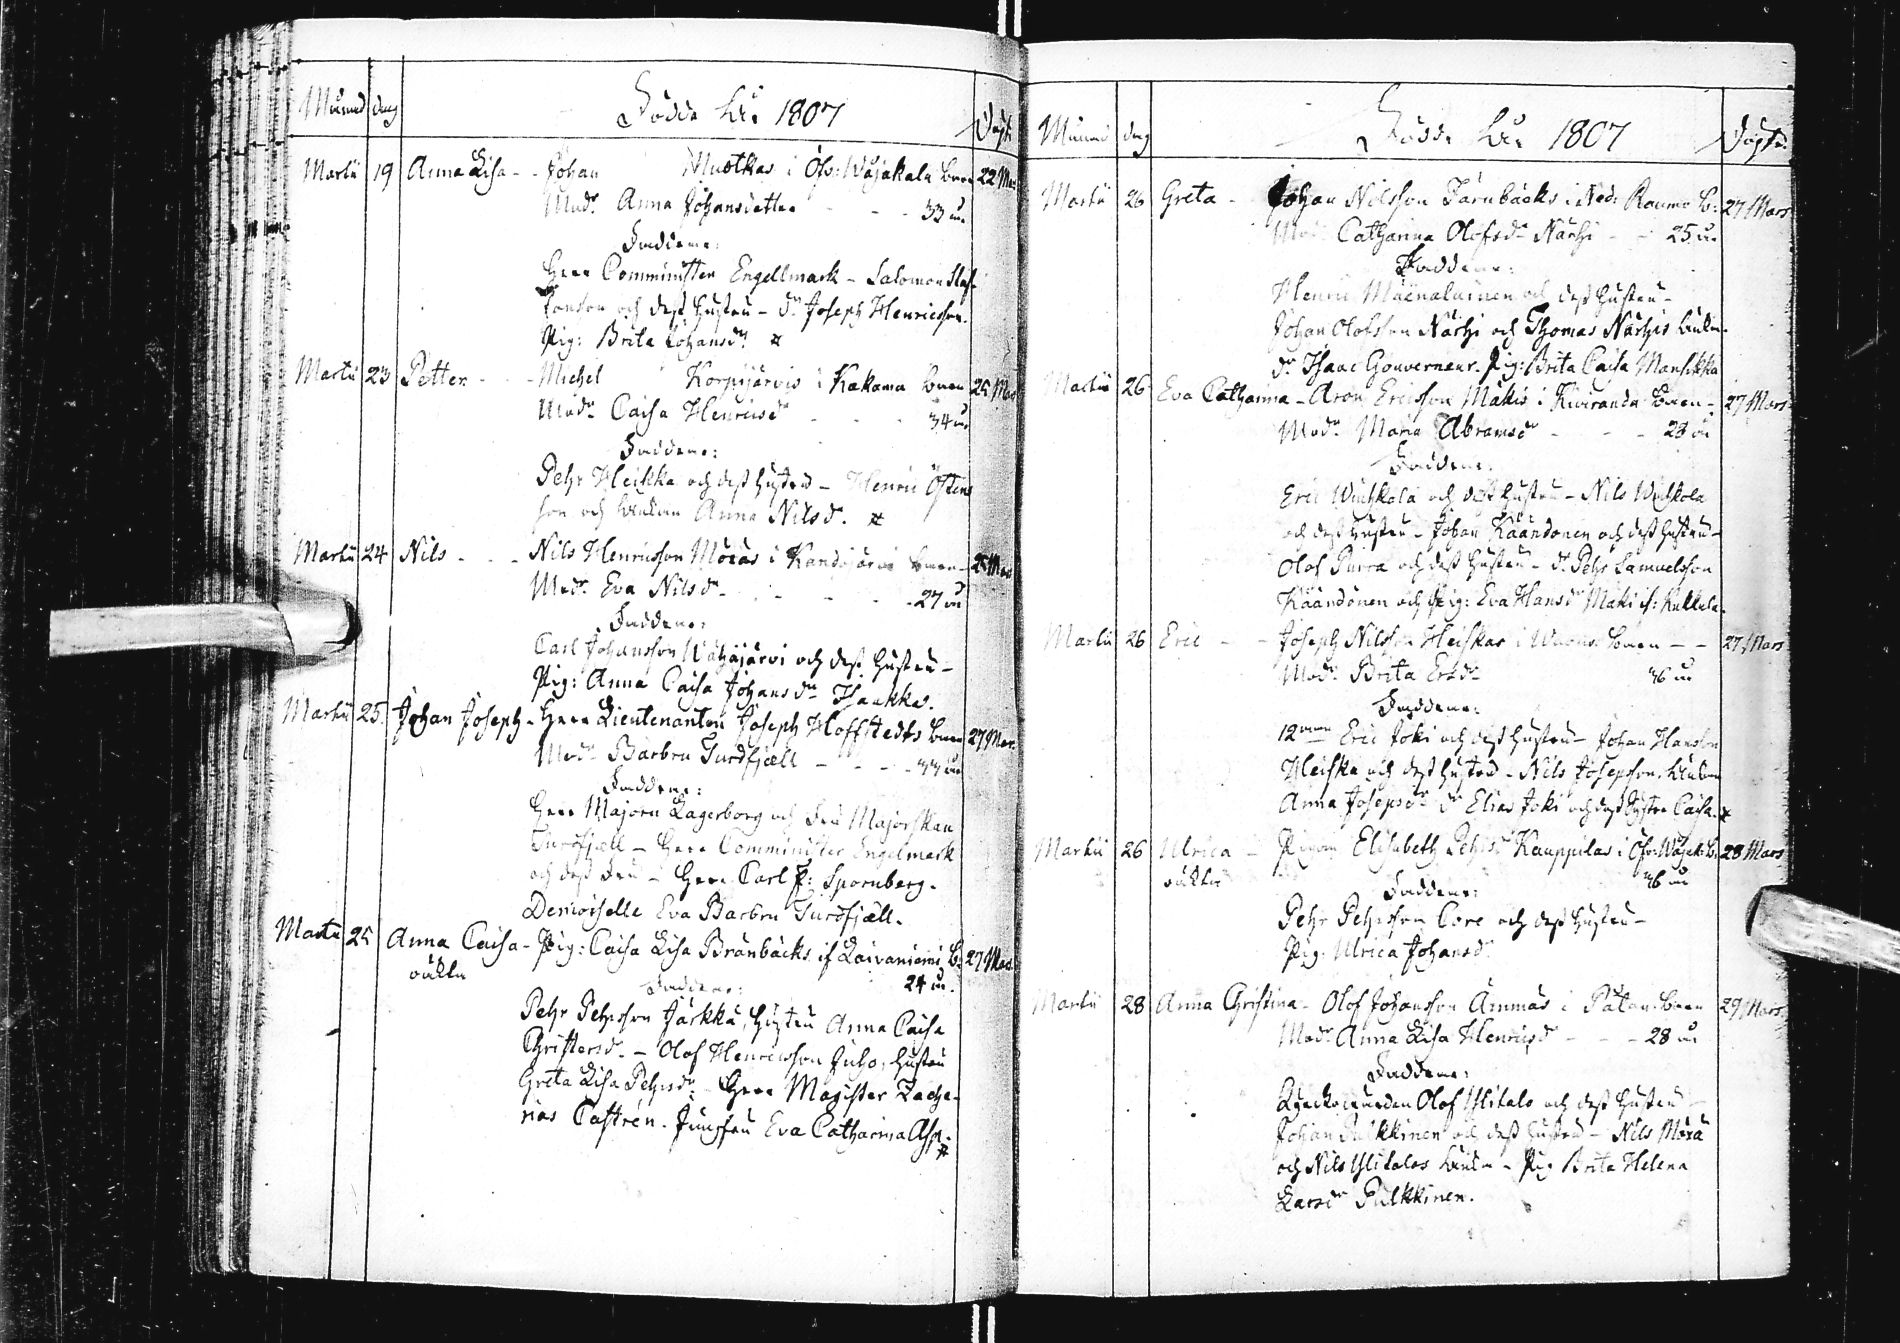 Månad dag Födde År 1807 Döpte
Martii 19 Anna Lisa - - Johan Muotkas i Öfv: Wojakala barn 22 Mar
Mod:r Anna Johansdotter - - - 33 år
Faddrar:
Herr Comminister Engellmark - Salomon Staf-
fansson och dess hustru - D:r Joseph Henricsson.
Pig: Brita Johansd:r
Martii 23 Petter - - - Michel Korpijärvis i Kakama barn 25 Mar
Mod:r Caisa Henricsd:r - - - 34 år
Faddrar:
Pehr Heikka och dess hustru - Henric Östens
son och Enkan Anna Nilsd:r
Martii 24 Nils - - - Nils Henricsson Moräs i Kandojärvi barn - 25 Mar
Mod:r Eva Nilsd:r - - - 27 år
Faddrar:
Carl Johansson Wähäjärvi och dess hustru -
Pig: Anna Caisa Johansd:r Isaakka.
Martii 25 Johan Joseph - Herr Lieutenanten Joseph Hoffstedts barn 27 Mar.
Mod:r Barbru Turdfjæll - - - 33 år
Faddrar:
Herr Majorn Lagerborg och Fru Majorskan
Turdfjæll - Herr Comminister Engelmark
och dess Fru - Herr Carl P: Spornberg.
Demoiselle Eva Barbru Turdfjæll.
Martii 25 Anna Caisa - Pig: Caisa Lisa Brånbäcks if Laivaniemi B: 27 Mar.
oäkta 24 år.
Faddrar:
Pehr Pehrsson Jarkka, hustru Anna Caisa
Christersd:r - Olof Henricsson Juho, hustru
Greta Lisa Pehrsd:r - Herr Magister Zacha-
rias Castrén. Jungfru Eva Catharina Asp.
Månad dag Födde År 1807 Döpte
Martii 26 Greta - Johan Nilsson Tärnbäcks i Ned: Raumo b: 27 Mars
Mod: Catharina Olofsd:r Närhi - - 25 år
Faddrar:
Henric Mäenalainen och dess hustru -
Johan Olofsson Närhi och Thomas Närhis Enka -
D:r Isaac Gouverneur. Pig: Brita Caisa Mansikka
Martii 26 Eva Catharina - Aron Ericsson Mäkis i Kiviranda barn - 27 Mars
Mod:r Maria Abramsd:r - - - 23 år
Faddrar:
Eric Wiuhkola och dess hustru - Nils Wiuhkola
och dess hustru - Johan Käändönen och dess hustru -
Olof Purra och dess hustru - D:r Pehr Samuelsson
Käändönen och Pig: Eva Hansd:r Mäki if: Kukkola.
Martii 26 Eric - - Joseph Nilsson Heiskas i barn - - 27 Mars
Mod:r Brita Ersd:r 36 år
Faddrar:
12 Eric Joki och dess hustru - Johan Hansson
Heiska och dess hustru - Nils Josepsson. Enkan
Anna Josepsd:r D:r Elias Joki och dess syster Caisa.
Martii 26 Ulrica - Pigan Elisabeth Pehrsd:r Kauppilas i Öfv: Wojak: b: 28 Mars
oäkta 36 år
Faddrar:
Pehr Pehrsson Core och dess hustru -
Pig: Ulrica Johansd:r
Martii 28 Anna Christina - Olof Johansson Ämmäs i Pätan barn 29 Mars.
Mod:r Anna Lisa Henricsd:r - - - 28 år
Faddrar:
Kyrckovärden Olof Ylitalo och dess hustru -
Johan Pulkkinen och dess hustru - Nils Mörä
och Nils Ylitalos Enka - Pig Brita Helena
Larsd:r Pulkkinen.